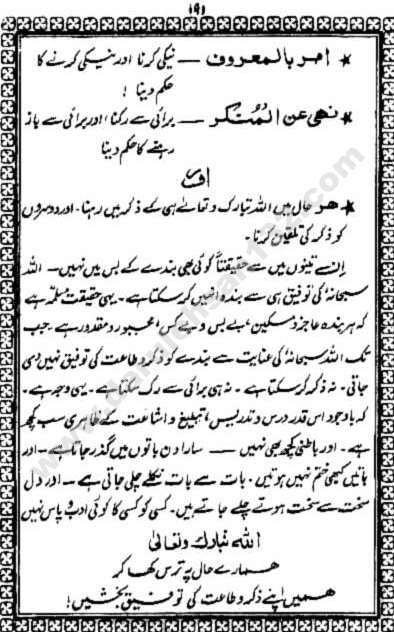 ۱۹۱
* امر بالمعروف — نیکی کرنا اور نیکی کرنے کا
حکم دینا !
* نھی عن المُنکر — برائی سے رکنا، اور برائی سے باز
رہنے کا حکم دینا
اور
* ھر حال میں اللہ تبارک و تعالٰے ہی کے ذکر میں رہنا۔ اور دوسروں
کو ذکر کی تلقین کرنا۔
اِن تینوں میں سے حقیقتاً کوئی بھی بندے کے بس میں نہیں — اللہ
سبحانہٗ کی توفیق ہی سے بندہ انہیں کر سکتا ہے۔ یہی حقیقت مسلمہ ہے
کہ ہر بندہ عاجز و مسکین، بے بس و بے کس، مجبور و مقدور ہے۔ جب
تک اللہ سبحانہٗ کی عنایت سے بندے کو ذکر و طاعت کی توفیق نہیں دی
جاتی۔ نہ ذکر کر سکتا ہے۔ نہ ہی برائی سے رک سکتا ہے۔ یہی وجہ ہے۔
کہ باوجود اس قدر درس و تدریس، تبلیغ و اشاعت کے ظاہری سب کچھ
ہے۔ اور باطنی کچھ بھی نہیں — سارا دن باتوں میں گذر جاتا ہے۔ اور
باتیں کبھی ختم نہیں ہوتیں۔ بات سے بات نکلے چلی جاتی ہے — اور دل
سخت سے سخت ہوتے چلے جاتے ہیں۔ کسی کو کسی کا کوئی ادب و پاس نہیں
اللہ تبارک وتعالیٰ
ھمارے حال پر ترس کھا کر
ھمیں اپنے ذکر و طاعت کی توفیق بخشیں!